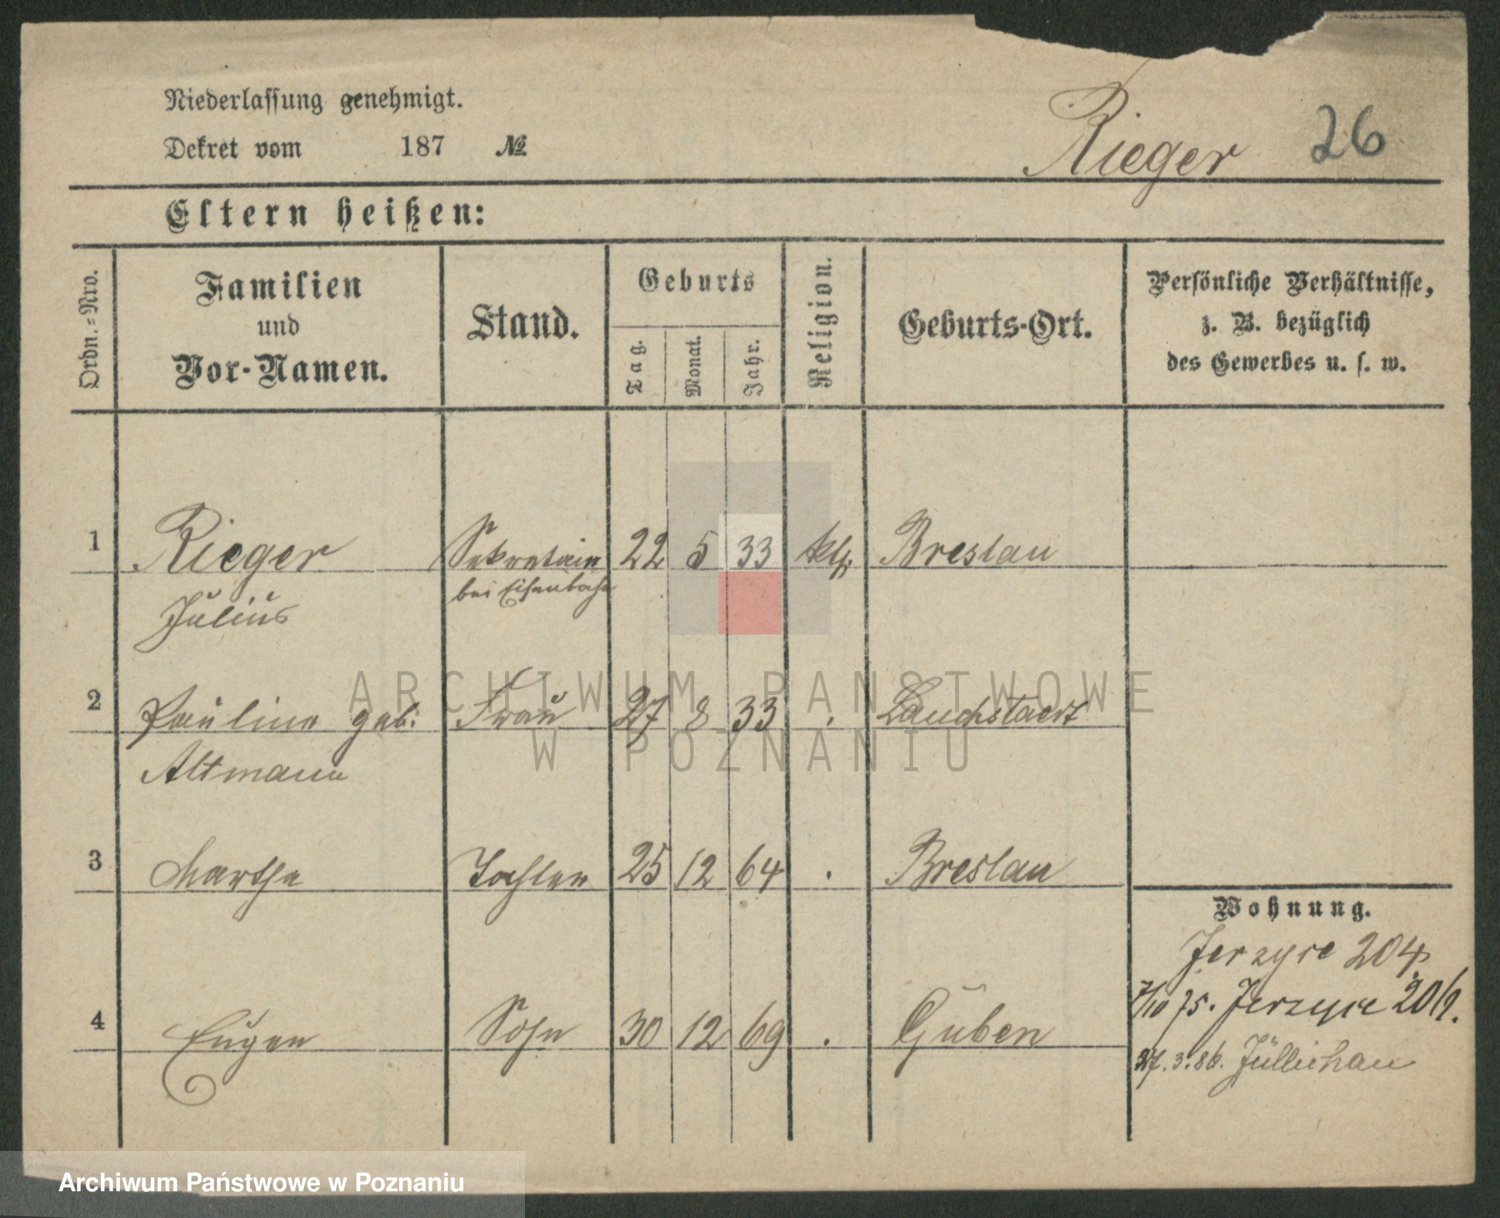 Niederlassung genehmigt.
Dekret vom 187 №
Rieger 26
Eltern heißen:
Ordn.-Nro.
Familien
und
Vor-Namen.
Stand.
Geburts
Tag.
Monat.
Jahr.
Religion.
Geburts-Ort.
Persönliche Verhältnisse,
z. B. bezüglich
des Gewerbes u. s. w.
1 Rieger Sekretair 22 5 33 Breslau
bei Eisenbahn
Julius
2 Pauline geb. Frau 27 8 33
Altmann
3 Martha Tochter 25 12 64 . Breslau
Wohnung.
Jerzyce 204
7/10 75. Jerzyce
4 Eugen Sohn 30 12 69 . Guben
27. 3. 86. Züllichau
ARCHIWUM PAŃSTWOWE
W POZNANIU
Archiwum Państwowe w Poznaniu